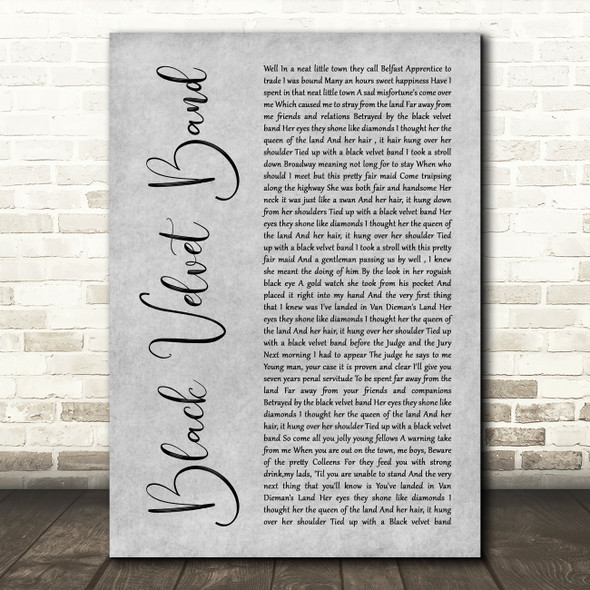 Black Velvet Band
Well In a neat little town they call Belfast Apprentice to
trade I was bound Many an hours sweet happiness Have I
spent in that neat little town A sad misfortune's come over
me Which caused me to stray from the land Far away from
me friends and relations Betrayed by the black velvet
band Her eyes they shone like diamonds I thought her the
queen of the land And her hair , it hair hung over her
shoulder Tied up with a black velvet band I took a stroll
down Broadway meaning not long for to stay When who
should I meet but this pretty fair maid Come traipsing
along the highway She was both fair and handsome Her
neck it was just like a swan And her hair, it hung down
from her shoulders Tied up with a black velvet band Her
eyes they shone like diamonds I thought her the queen of
the land And her hair, it hung over her shoulder Tied up
with a black velvet band I took a stroll with this pretty
fair maid And a gentleman passing us by well , I knew
she meant the doing of him By the look in her roguish
black eye A gold watch she took from his pocket And
placed it right into my hand And the very first thing that
I knew was I've landed in Van Dieman's Land Her
eyes they shone like diamonds I thought her the queen of
the land And her hair, it hung over her shoulder Tied up
with a black velvet band before the Judge and the Jury
Next morning I had to appear The judge he says to me
Young man, your case it is proven and clear I'll give you
seven years penal servitude To be spent far away from the
land Far away from your friends and companions
Betrayed by the black velvet band Her eyes they shone like
diamonds I thought her the queen of the land And her
hair, it hung over her shoulder Tied up with a black velvet
band So come all you jolly young fellows A warning take
from me When you are out on the town, me boys, Beware
of the pretty Colleens For they feed you with strong
drink,my lads, 'Til you are unable to stand And the very
next thing that you'll know is You've landed in Van
Dieman's Land Her eyes they shone like diamonds I
thought her the queen of the land And her hair, it hung
over her shoulder Tied up with a Black velvet band